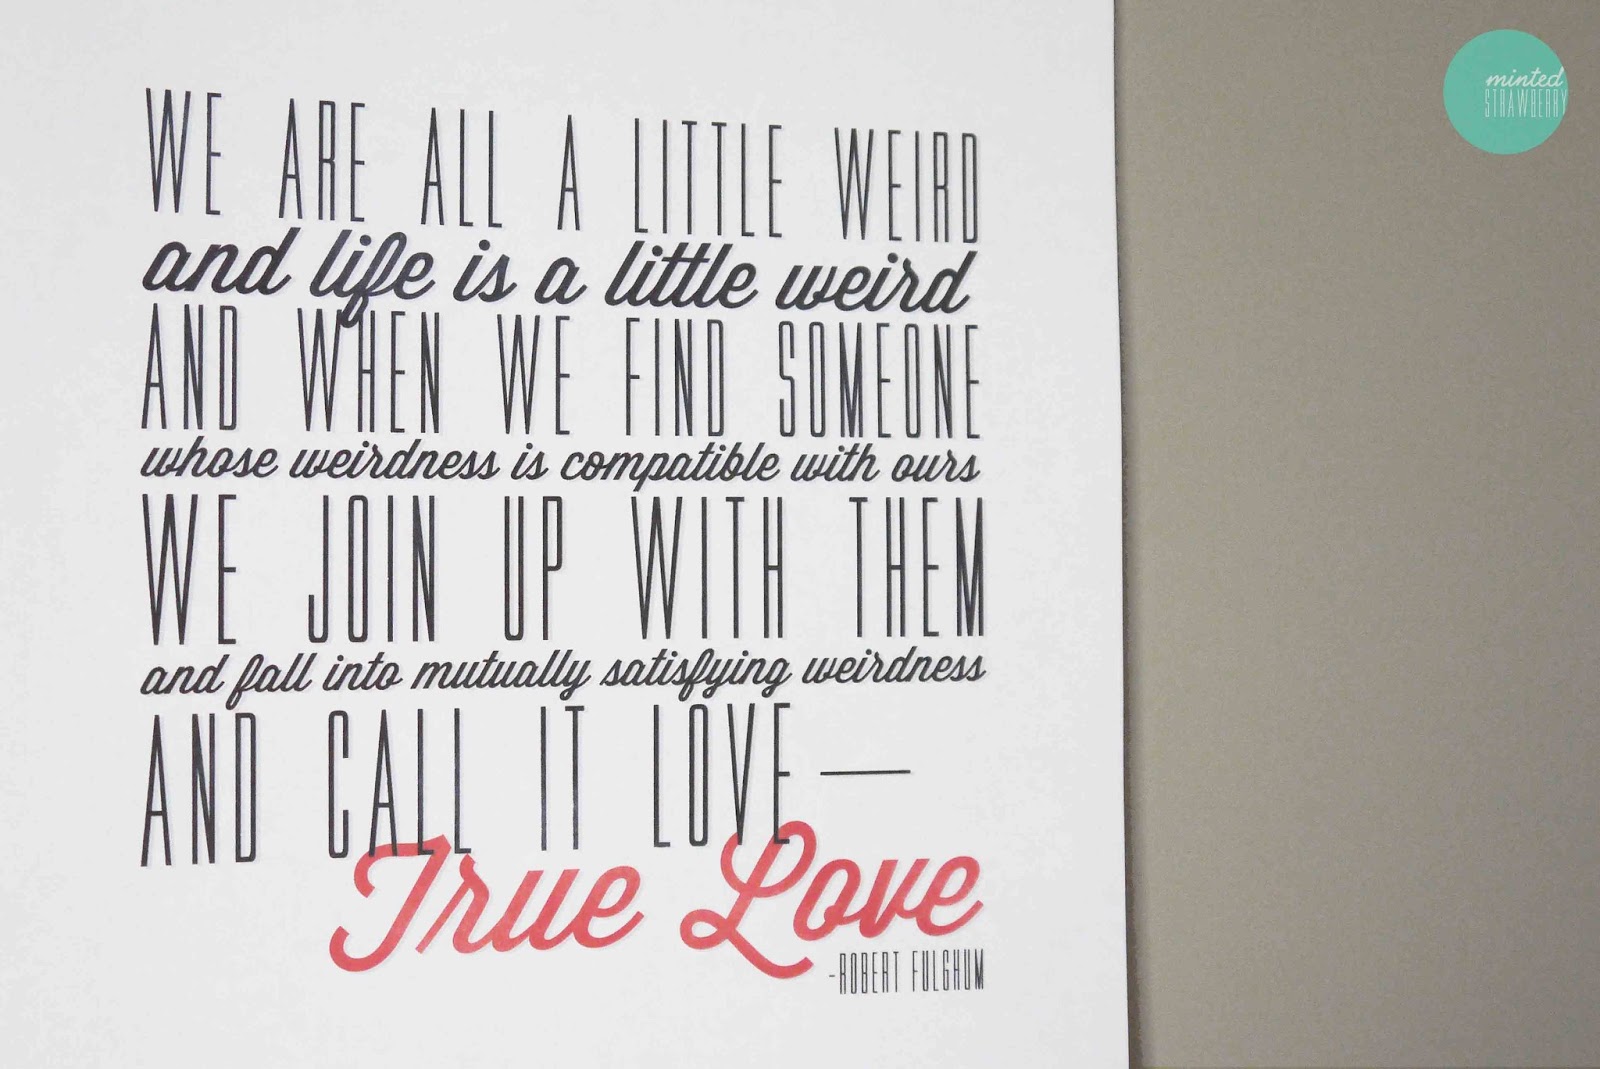 WE ARE ALL A LITTLE WEIRD
and life is a little weird
AND WHEN WE FIND SOMEONE
whose weirdness is compatible with ours
WE JOIN UP WITH THEM
and fall into mutually satisfying weirdness
AND CALL IT LOVE —
True Love
-ROBERT FULGHUM
minted
STRAWBERRY